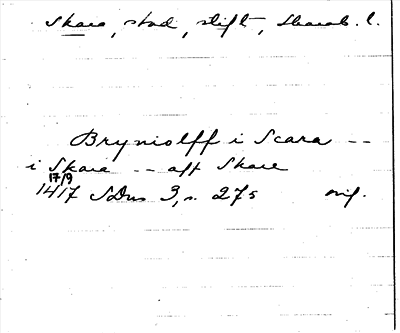 Skara, stad, stift, Skarab. l.
Bryniolff i Scara --
i Skara -- aff Skare
17/9
1417 SDns 3, s. 275 orig.